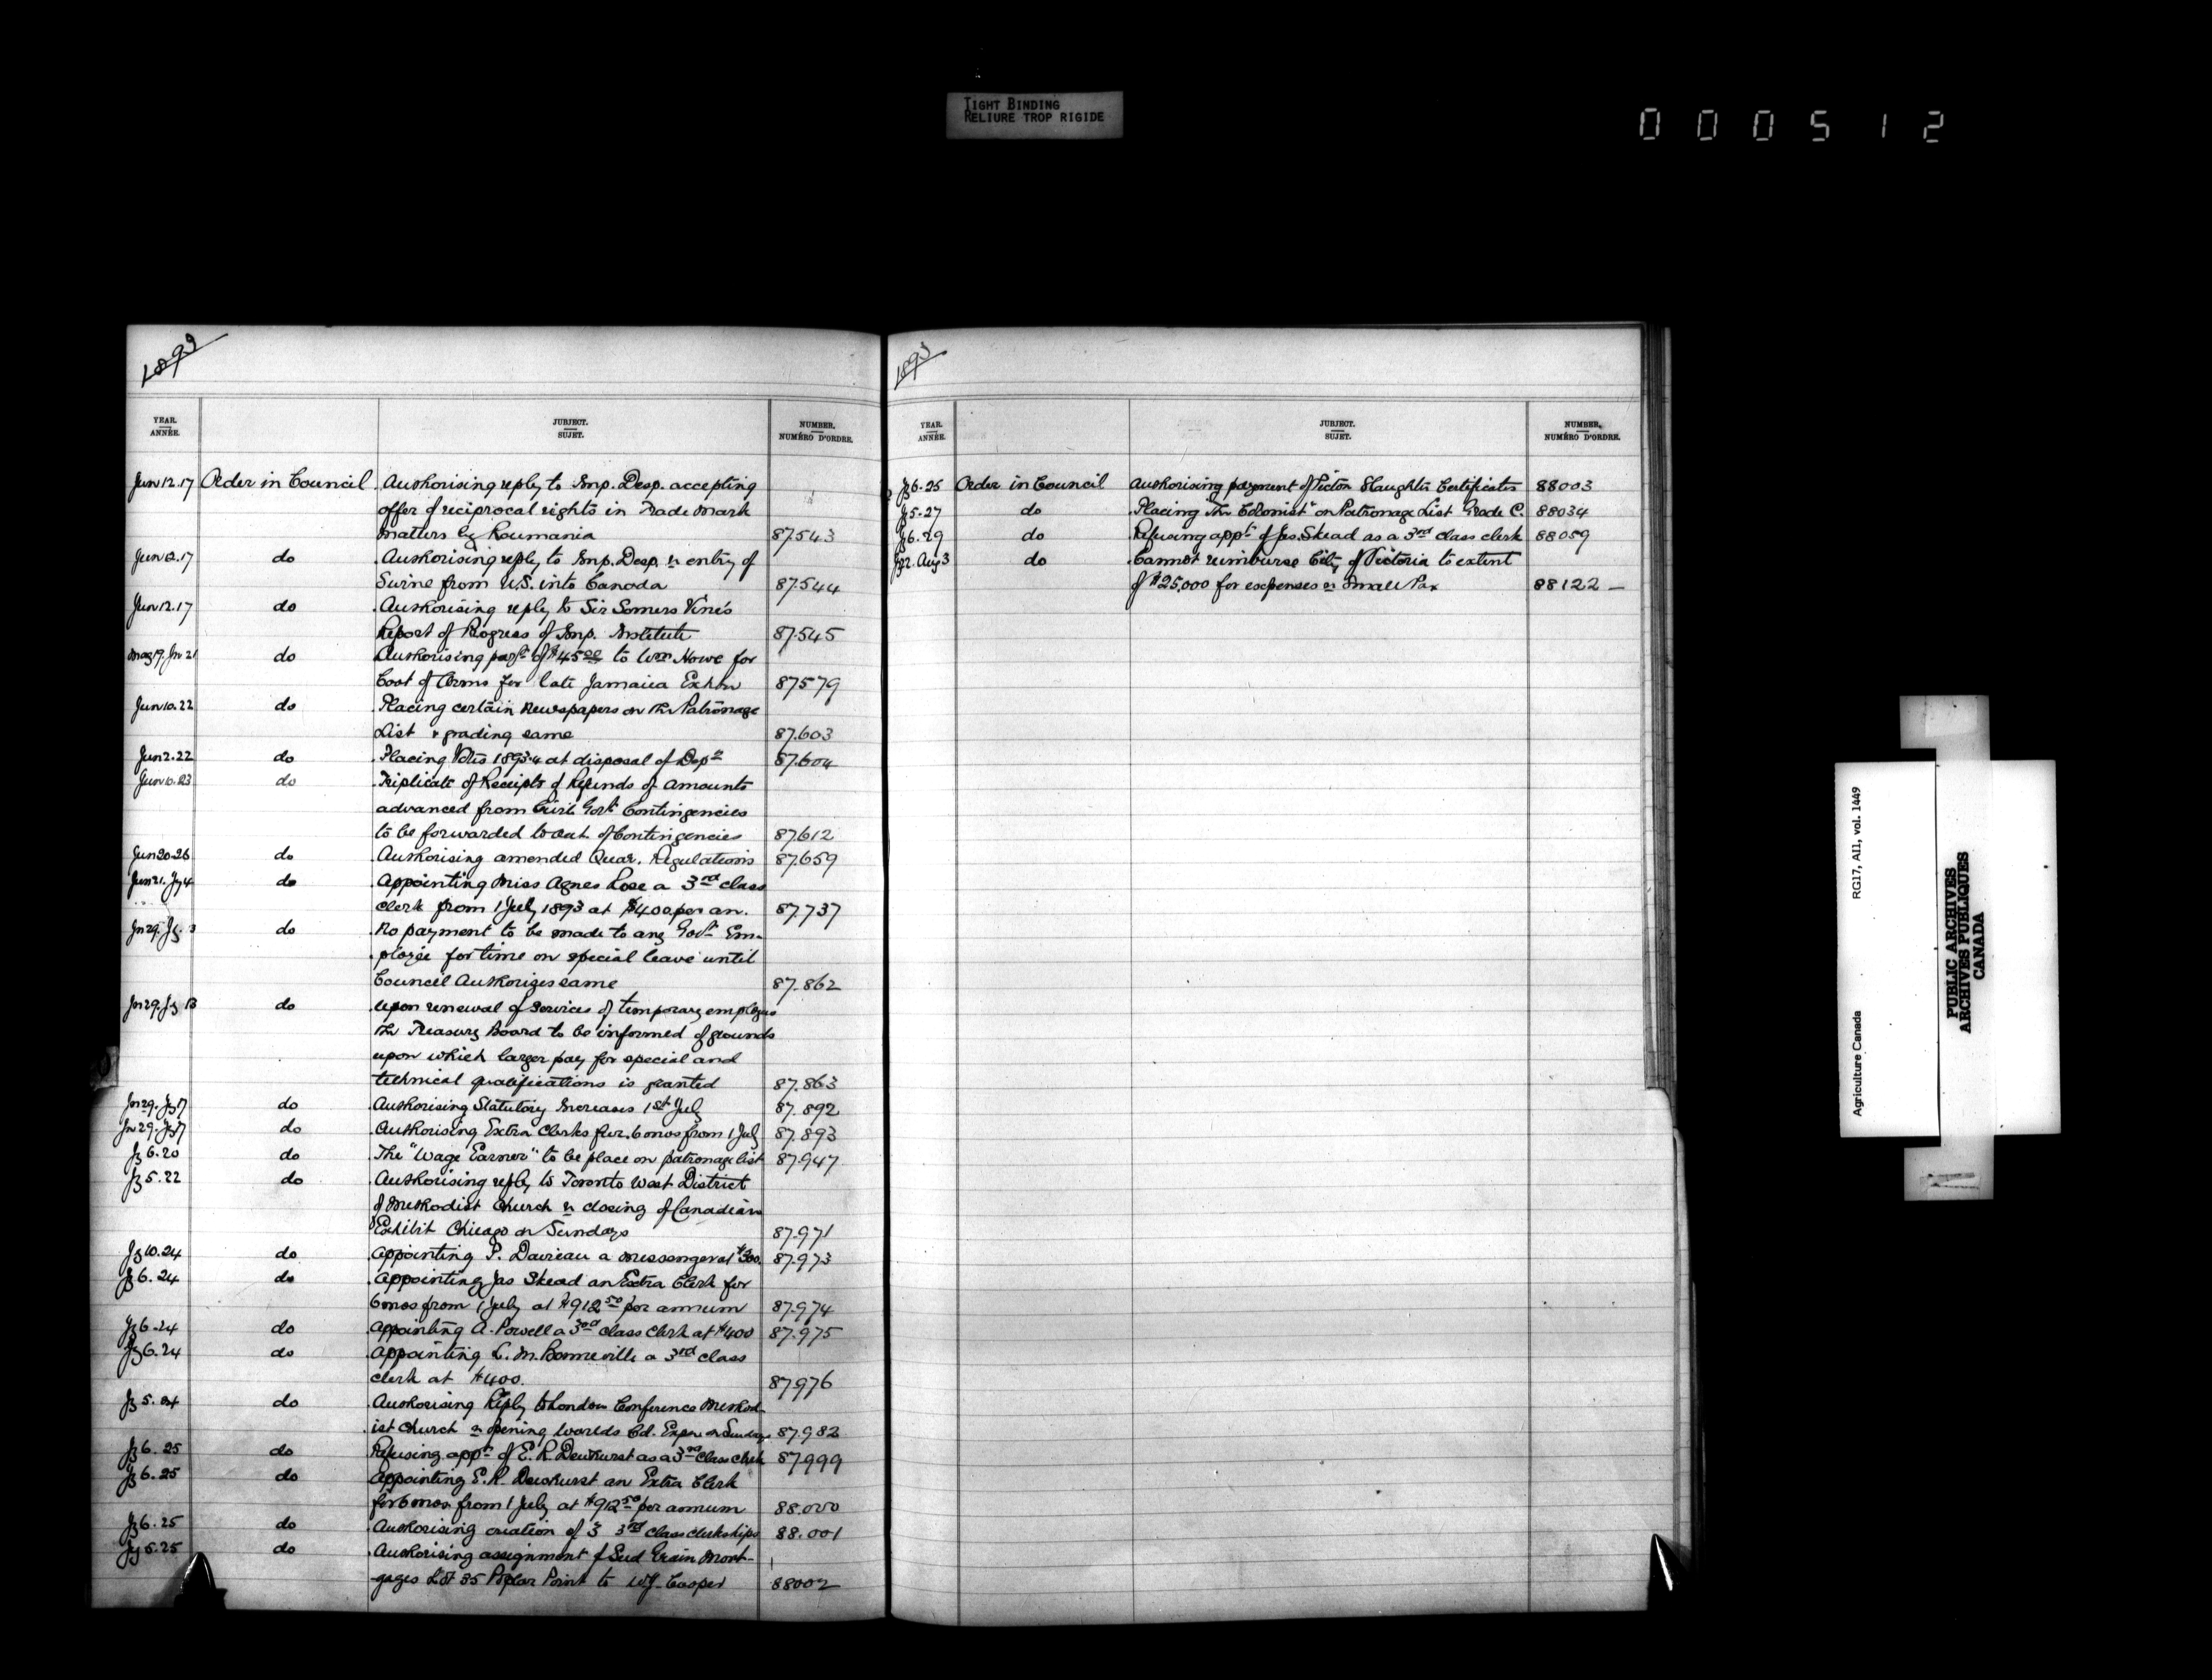 TIGHT BINDING
RELIURE TROP RIGIDE
000512
1893
YEAR.
ANNÉE.
JUBJECT.
SUJET.
NUMBER,
NUMÉRO D'ORDRE.
Jun 12.17 Order in Council Authorising reply to Imp. Desp. accepting
offer of reciprocal rights in Trade Mark
matters by Roumania 87.543
Jun 12.17 do Authorising reply to Imp. Desp. re entry of
Swine from U.S. into Canada 87.544
Jun 12.17 do Authorising reply to Sir Somers Vine's
Report of Progress of Imp. Institute 87.545
May 19. Jn 21 do Authorising payt of $45.00 to Wm Howe for
Coat of Arms for late Jamaica Exhbn 87579
Jun 10.22 do Placing certain Newspapers on the Patronage
List & grading same 87.603
Jun 2.22 do Placing Votes 1893-4 at disposal of Depts 87.604
Jun 10.23 do Triplicate of Receipts of Refunds of amounts
advanced from Civil Govt Contingencies
to be forwarded to acct. of Contingencies 87.612
Jun 20.26 do Authorising amended Quar. Regulations 87.659
Jun 21. Jy 4 do Appointing Miss Agnes Lose a 3rd class
clerk from 1 July 1893 at $400 per an. 87.737
Jn 29. Jy. 13 do No payment to be made to any Govt Em-
ployée for time on special leave until
Council Authorizes same 87.862
Jn 29. Jy 13 do Upon renewal of services of temporary employees
the Treasury Board to be informed of grounds
upon which larger pay for special and
technical qualifications is granted 87.863
Jn 29. Jy 17 do Authorising Statutory Increases 1st July 87.892
Jn 29. Jy 17 do Authorising Extra Clerks for 6 mos from 1 July 87.893
Jy 6.20 do The "Wage Earner" to be place on patronage list 87.947
Jy 5.22 do Authorising reply to Toronto West District
of Methodist Church re closing of Canadian
Exhibit Chicago on Sundays 87.971
Jy 10.24 do Appointing P. Davieau a messenger at $300. 87.973
Jy 6.24 do Appointing Jas Skead an Extra Clerk for
6 mos from 1 July at $912.50 per annum 87.974
Jy 6.24 do Appointing A. Powell a 3rd class clerk at $400 87.975
Jy 6.24 do Appointing L. M. Bonneville a 3rd class
clerk at $400. 87976
Jy 5.24 do Authorising Reply to London Conference Method-
ist Church re opening Worlds Col. Expn on Sundays 87.982
Jy 6.25 do Refusing appt of E. R. Dewhurst as a 3rd class clerk 87999
Jy 6.25 do Appointing E. R. Dewhurst an Extra Clerk
for 6 mos. from 1 July at $912.50 per annum 88.000
Jy 6.25 do Authorising creation of 3 3rd class clerkships 88.001
Jy 5.25 do Authorising assignment of Seed Grain Mort-
gages Lot 35 Poplar Point to W.J. Cooper 88002
1893
YEAR.
ANNÉE.
JUBJECT.
SUJET.
NUMBER,
NUMÉRO D'ORDRE.
Jy 6.25 Order in Council Authorising payment of Picton Slaughter Certificates 88003
Jy 5.27 do Placing "The Colonist" on Patronage List Grade C. 88034
Jy 6.29 do Refusing appt of Jas. Skead as a 3rd class clerk 88059
Jy 22. Aug 3 do Cannot reimburse City of Victoria to extent
of $25,000 for expenses re Small Pox 88122 —
RG17, AII, vol. 1449
Agriculture Canada
PUBLIC ARCHIVES
ARCHIVES PUBLIQUES
CANADA